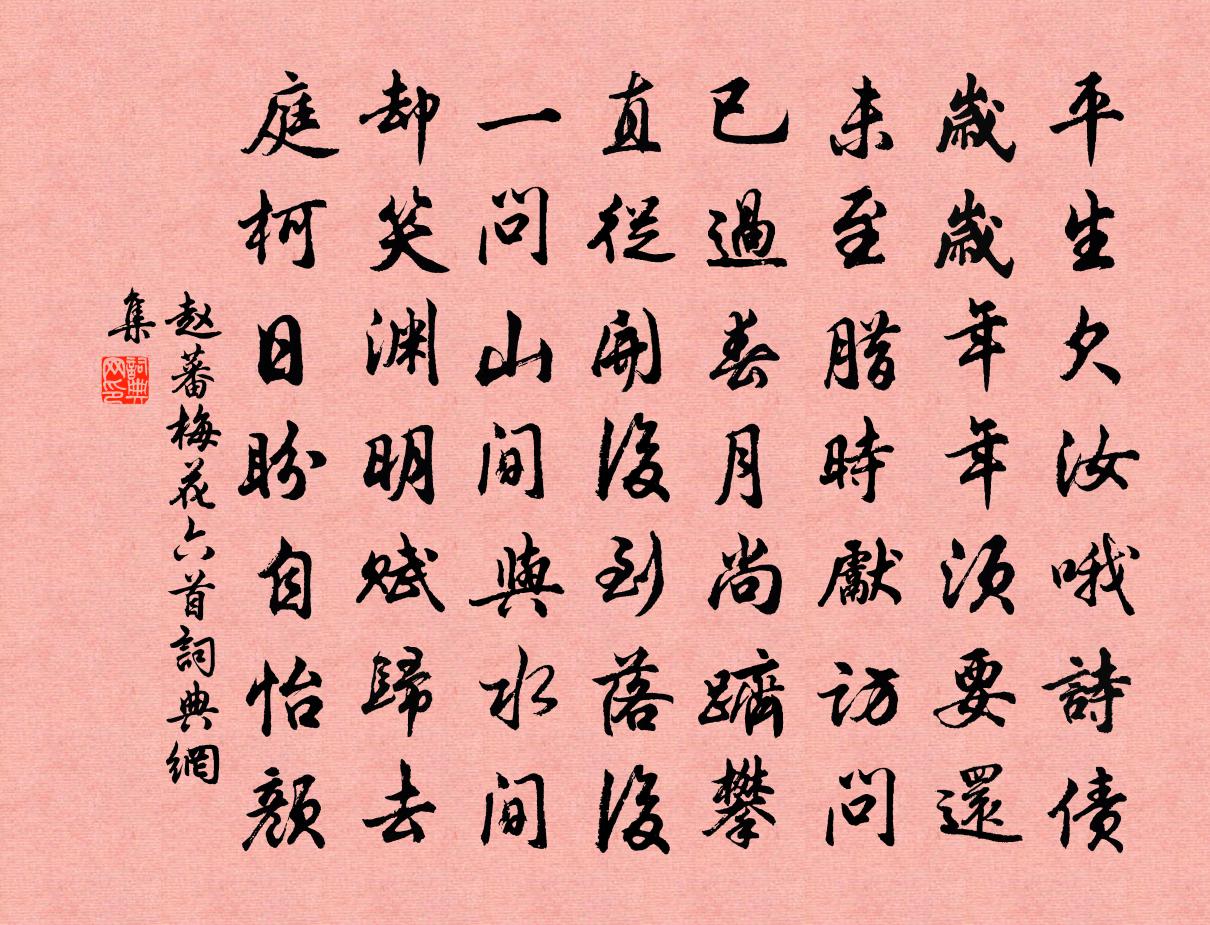 平生欠汝哦詩債
歲歲年年須要還
未至腊時獻訪問
已過春月尚躋攀
直從開後到落後
一問山間與水間
却笑渊明賦歸去
庭柯日盼自怡顏
赵蕃梅花六首詞典網
集
詞典网印